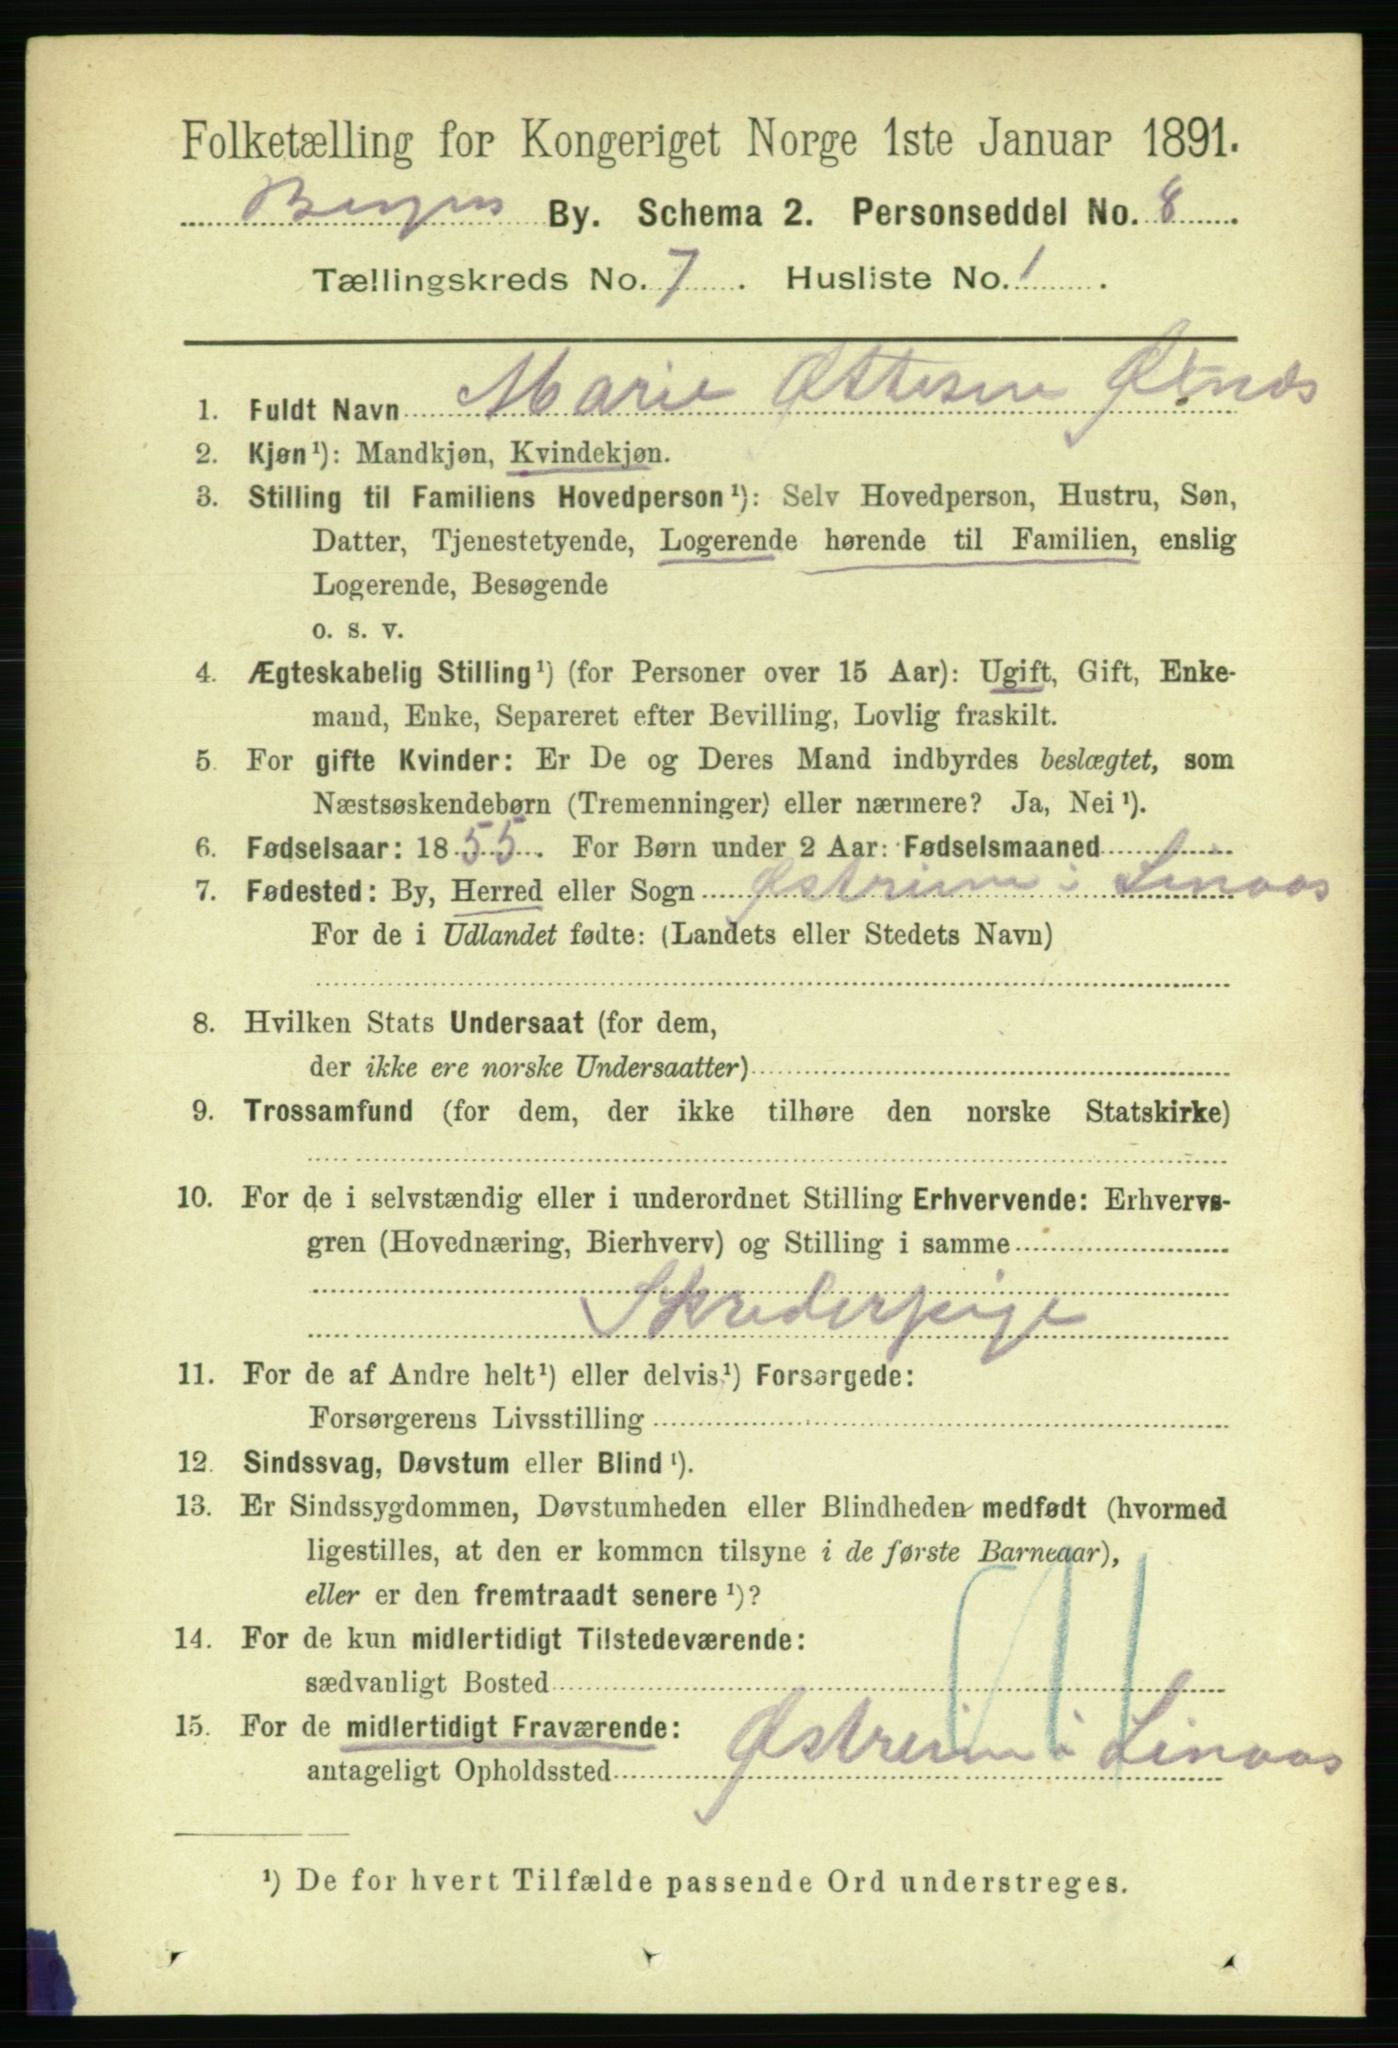 Folketælling for Kongeriget Norge 1ste Januar 1891.
Bergens By. Schema 2. Personseddel No. 8.
Tællingskreds No. 7. Husliste No. 1.
1. Fuldt Navn Marie Ottesen
2. Kjøn¹): Mandkjøn, Kvindekjøn.
3. Stilling til Familiens Hovedperson¹): Selv Hovedperson, Hustru, Søn,
Datter, Tjenestetyende, Logerende hørende til Familien, enslig
Logerende, Besøgende
o. s. v.
4. Ægteskabelig Stilling¹) (for Personer over 15 Aar): Ugift, Gift, Enke-
mand, Enke, Separeret efter Bevilling, Lovlig fraskilt.
5. For gifte Kvinder: Er De og Deres Mand indbyrdes beslægtet, som
Næstsøskendebørn (Tremenninger) eller nærmere? Ja, Nei¹).
6. Fødselsaar: 1855. For Børn under 2 Aar: Fødselsmaaned
7. Fødested: By, Herred eller Sogn Østreim i Linaas
For de i Udlandet fødte: (Landets eller Stedets Navn)
8. Hvilken Stats Undersaat (for dem,
der ikke ere norske Undersaatter)
9. Trossamfund (for dem, der ikke tilhøre den norske Statskirke)
10. For de i selvstændig eller i underordnet Stilling Erhvervende: Erhvervs-
gren (Hovednæring, Bierhverv) og Stilling i samme
Skrederpige
11. For de af Andre helt¹) eller delvis¹) Forsørgede:
Forsørgerens Livsstilling
12. Sindssvag, Døvstum eller Blind¹).
13. Er Sindssygdommen, Døvstumheden eller Blindheden medfødt (hvormed
ligestilles, at den er kommen tilsyne i de første Barneaar),
eller er den fremtraadt senere¹)?
14. For de kun midlertidigt Tilstedeværende:
sædvanligt Bosted
15. For de midlertidigt Fraværende:
antageligt Opholdssted Østreim i Linaas
¹) De for hvert Tilfælde passende Ord understreges.